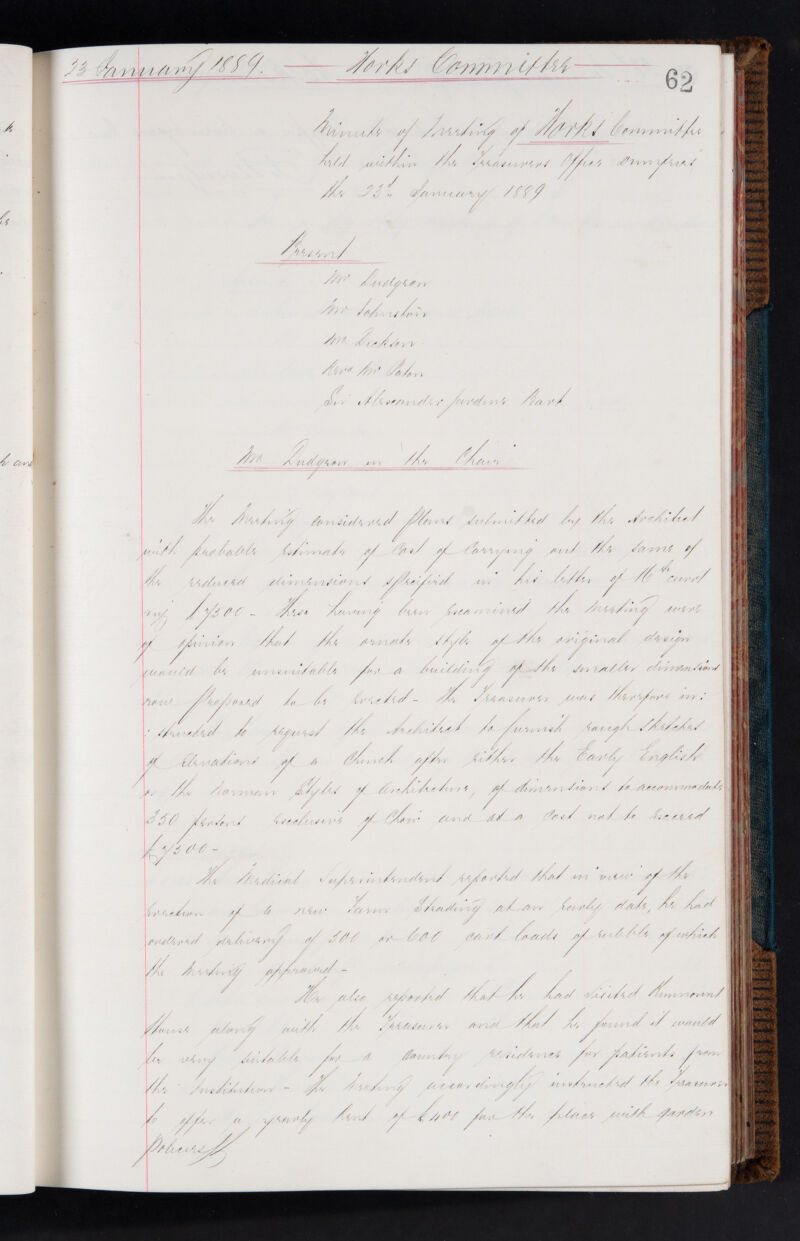 23 January 1889. Works Committee
62
Minute of Meeting of Works Committee
held within the Treasurers Office Dumfries
the 23d January 1889
Present
Mr Dudgeon
Mr Johnston
Mr Dickson
Revd Mr Paton
Sir Alexander Jardine Bart
Mr Dudgeon in the Chair
The Meeting considered plans submitted by the Architect
with probable estimate of cost of carrying out the same of
the reduced dimensions specified in his letter of 16th curt
viz £7300 – these having been examined the Meeting were
of opinion that the ornate style of the original design
would be unsuitable for a building of the smaller dimensions
now proposed to be erected – the Treasurer was therefore in:
:structed to request the Architect to furnish rough sketches
of elevations of a Church after either the Early English
or the Norman Styles of Architecture, of dimensions to accommodate
350 persons exclusive of Choir and at a cost not to exceed
£7300 –
The Medical Superintendent reported that in view of the
erection of a new Farm Steading at an early date, he had
ordered delivery of 500 or 600 cart loads of rubble of which
the Meeting approved –
He also reported that he had visited Kinmount
House along with the Treasurer and that he found it would
be very suitable for a country residence for patients from
the Institution – The Meeting accordingly instructed the Treasurer
to offer a yearly Rent of £400 for the place with garden
Policies